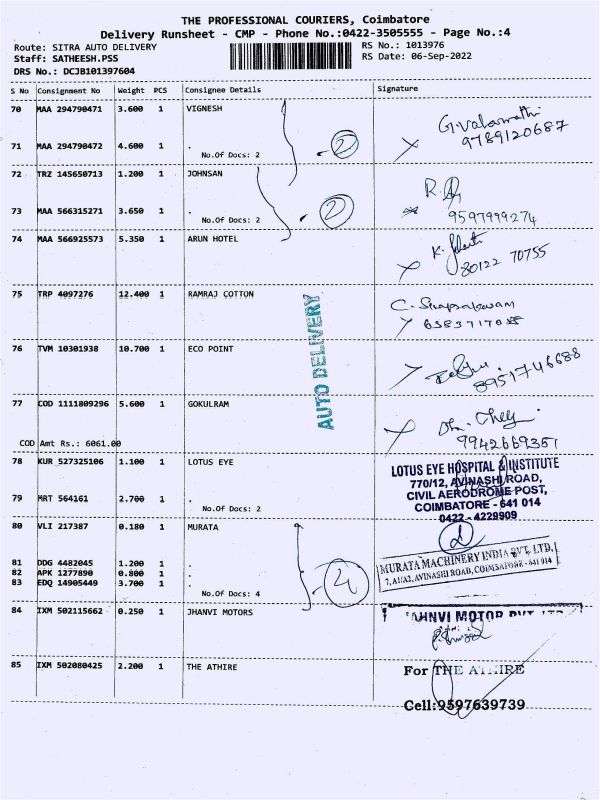 THE PROFESSIONAL COURIERS, Coimbatore
Delivery Runsheet - CMP - Phone No.:0422-3505555 - Page No.:4
Route: SITRA AUTO DELIVERY RS No.: 1013976
Staff: SATHEESH.PSS RS Date: 06-Sep-2022
DRS No.: DCJB101397604
S No Consignment No Weight PCS Consignee Details Signature
70 MAA 294790471 3.600 1 VIGNESH
G.Valarmathi
9789120687
71 MAA 294790472 4.600 1 .
No.Of Docs: 2 2
72 TRZ 145650713 1.200 1 JOHNSAN
73 MAA 566315271 3.650 1 .
No.Of Docs: 2 2
9597999274
74 MAA 566925573 5.350 1 ARUN HOTEL
80122 70755
75 TRP 4097276 12.400 1 RAMRAJ COTTON
AUTO DELIVERY
76 TVM 10301938 10.700 1 ECO POINT
8951746688
77 COD 1111809296 5.600 1 GOKULRAM
COD Amt Rs.: 6061.00
9942669351
78 KUR 527325106 1.100 1 LOTUS EYE
LOTUS EYE HOSPITAL & INSTITUTE
770/12, AVINASHI ROAD,
CIVIL AERODROME POST,
COIMBATORE - 641 014
0422 - 4229909
79 MRT 564161 2.700 1 .
No.Of Docs: 2
80 VLI 217387 0.180 1 MURATA
81 DDG 4482045 1.200 1 .
82 APK 1277890 0.800 1 .
83 EDQ 14905449 3.700 1 .
No.Of Docs: 4 4
MURATA MACHINERY INDIA PVT. LTD.
AVINASHI ROAD, COIMBATORE - 641 014
84 IXM 502115662 0.250 1 JHANVI MOTORS
AHNVI MOTOR PVT
85 IXM 502080425 2.200 1 THE ATHIRE
For THE ATHIRE
Cell:9597639739